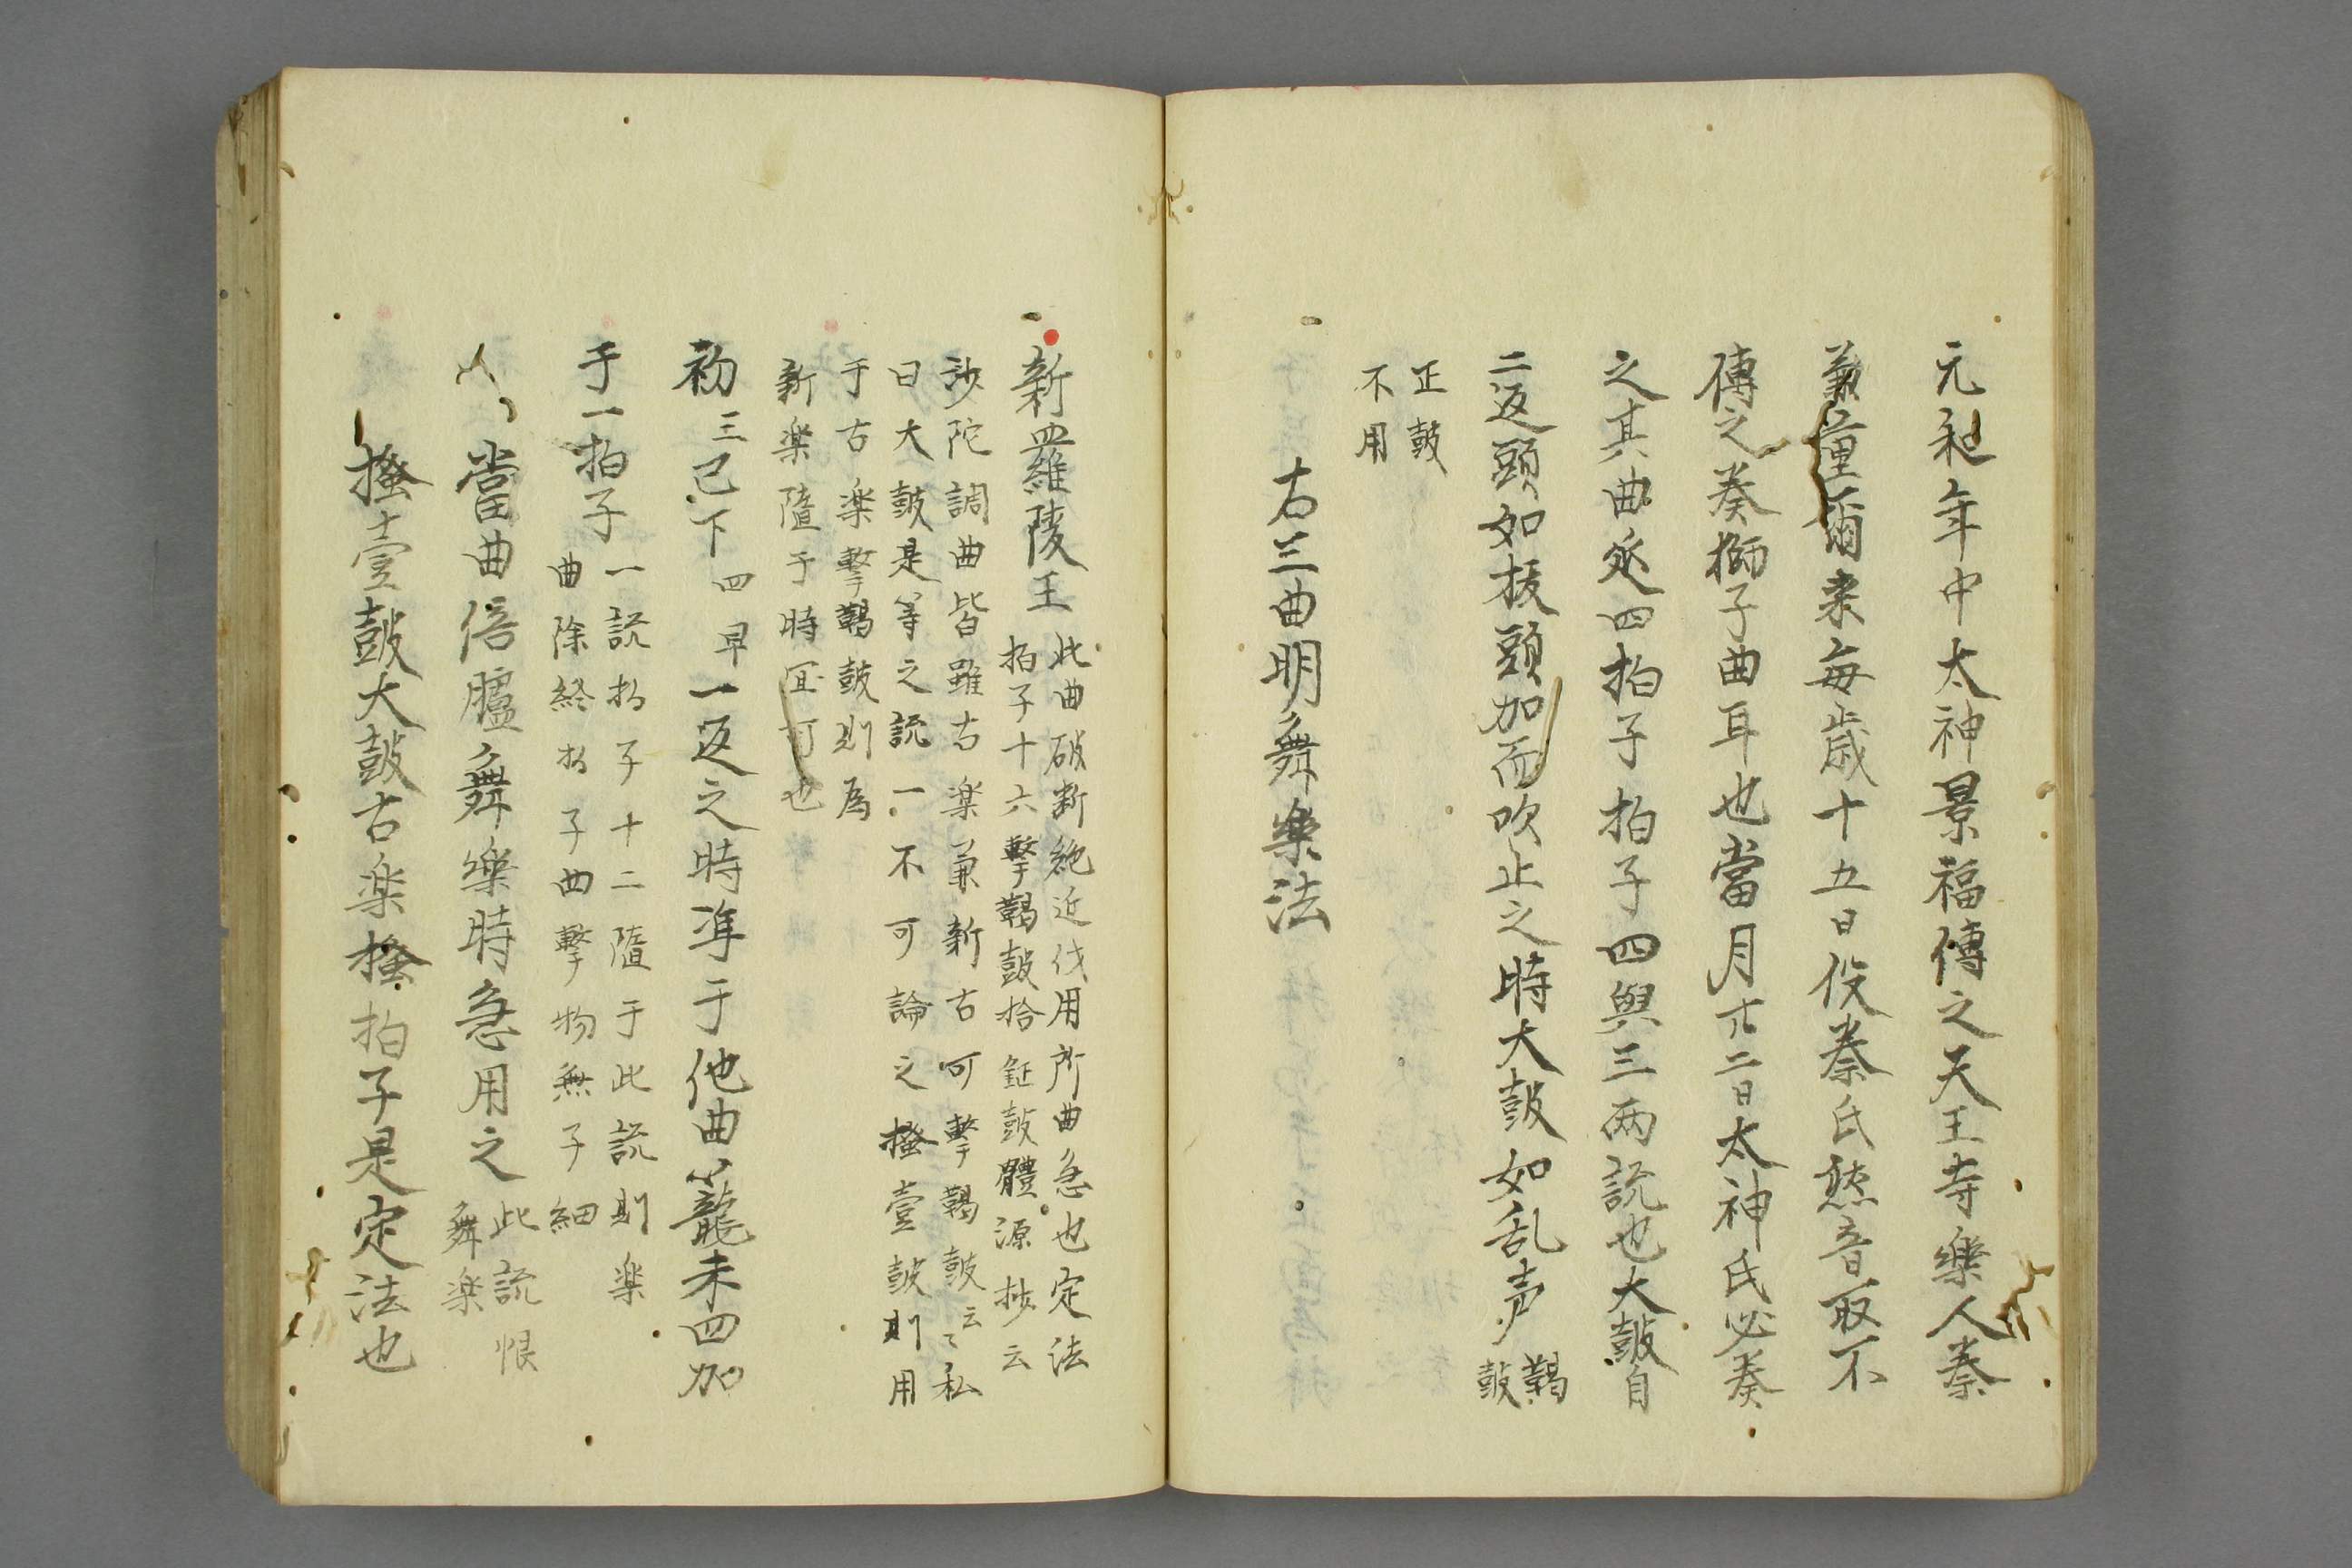 元和年中太神景福傳之天王寺樂人秦
兼童爾来毎歳十五日役秦氏愁音取不
傳之奏獅子曲耳也當月廿二日太神氏必奏
之其曲延四拍子拍子四與三两説也大鼓自
二返頭如抜頭加而吹止之時大鼓如乱声 鞨
鼓
正鼓
不用
右三曲明舞樂法
一新羅陵王 此曲破断絶近代用所曲急也定法
拍子十六撃鞨鼓拾鉦鼓體源抄云
沙陀調曲皆雖古楽兼新古可撃鞨鼓云々私
曰大鼓是等之説一不可論之掻壹鼓則用
于古楽撃鞨鼓則為
新楽隨于時宜可也
初三已下四早一返之時準于他曲籠未四加
于一拍子 一説拍子十二隨于此説則楽
曲除終拍子曲撃物無子細
當曲倍臚舞樂時急用之 此説恨
舞楽
掻壹鼓大鼓古楽掻拍子是定法也